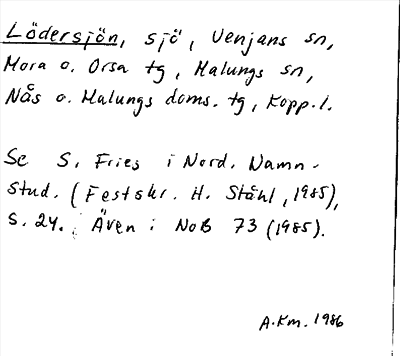 Lödersjön, sjö, Venjans sn,
Mora o. Orsa tg, Malungs sn,
Nås o. Malungs doms. tg, Kopp. l.
Se S. Fries i Nord. Namn-
stud. (Festskr. H. Ståhl, 1985),
s. 24. Även i NoB 73 (1985).
A.Km. 1986